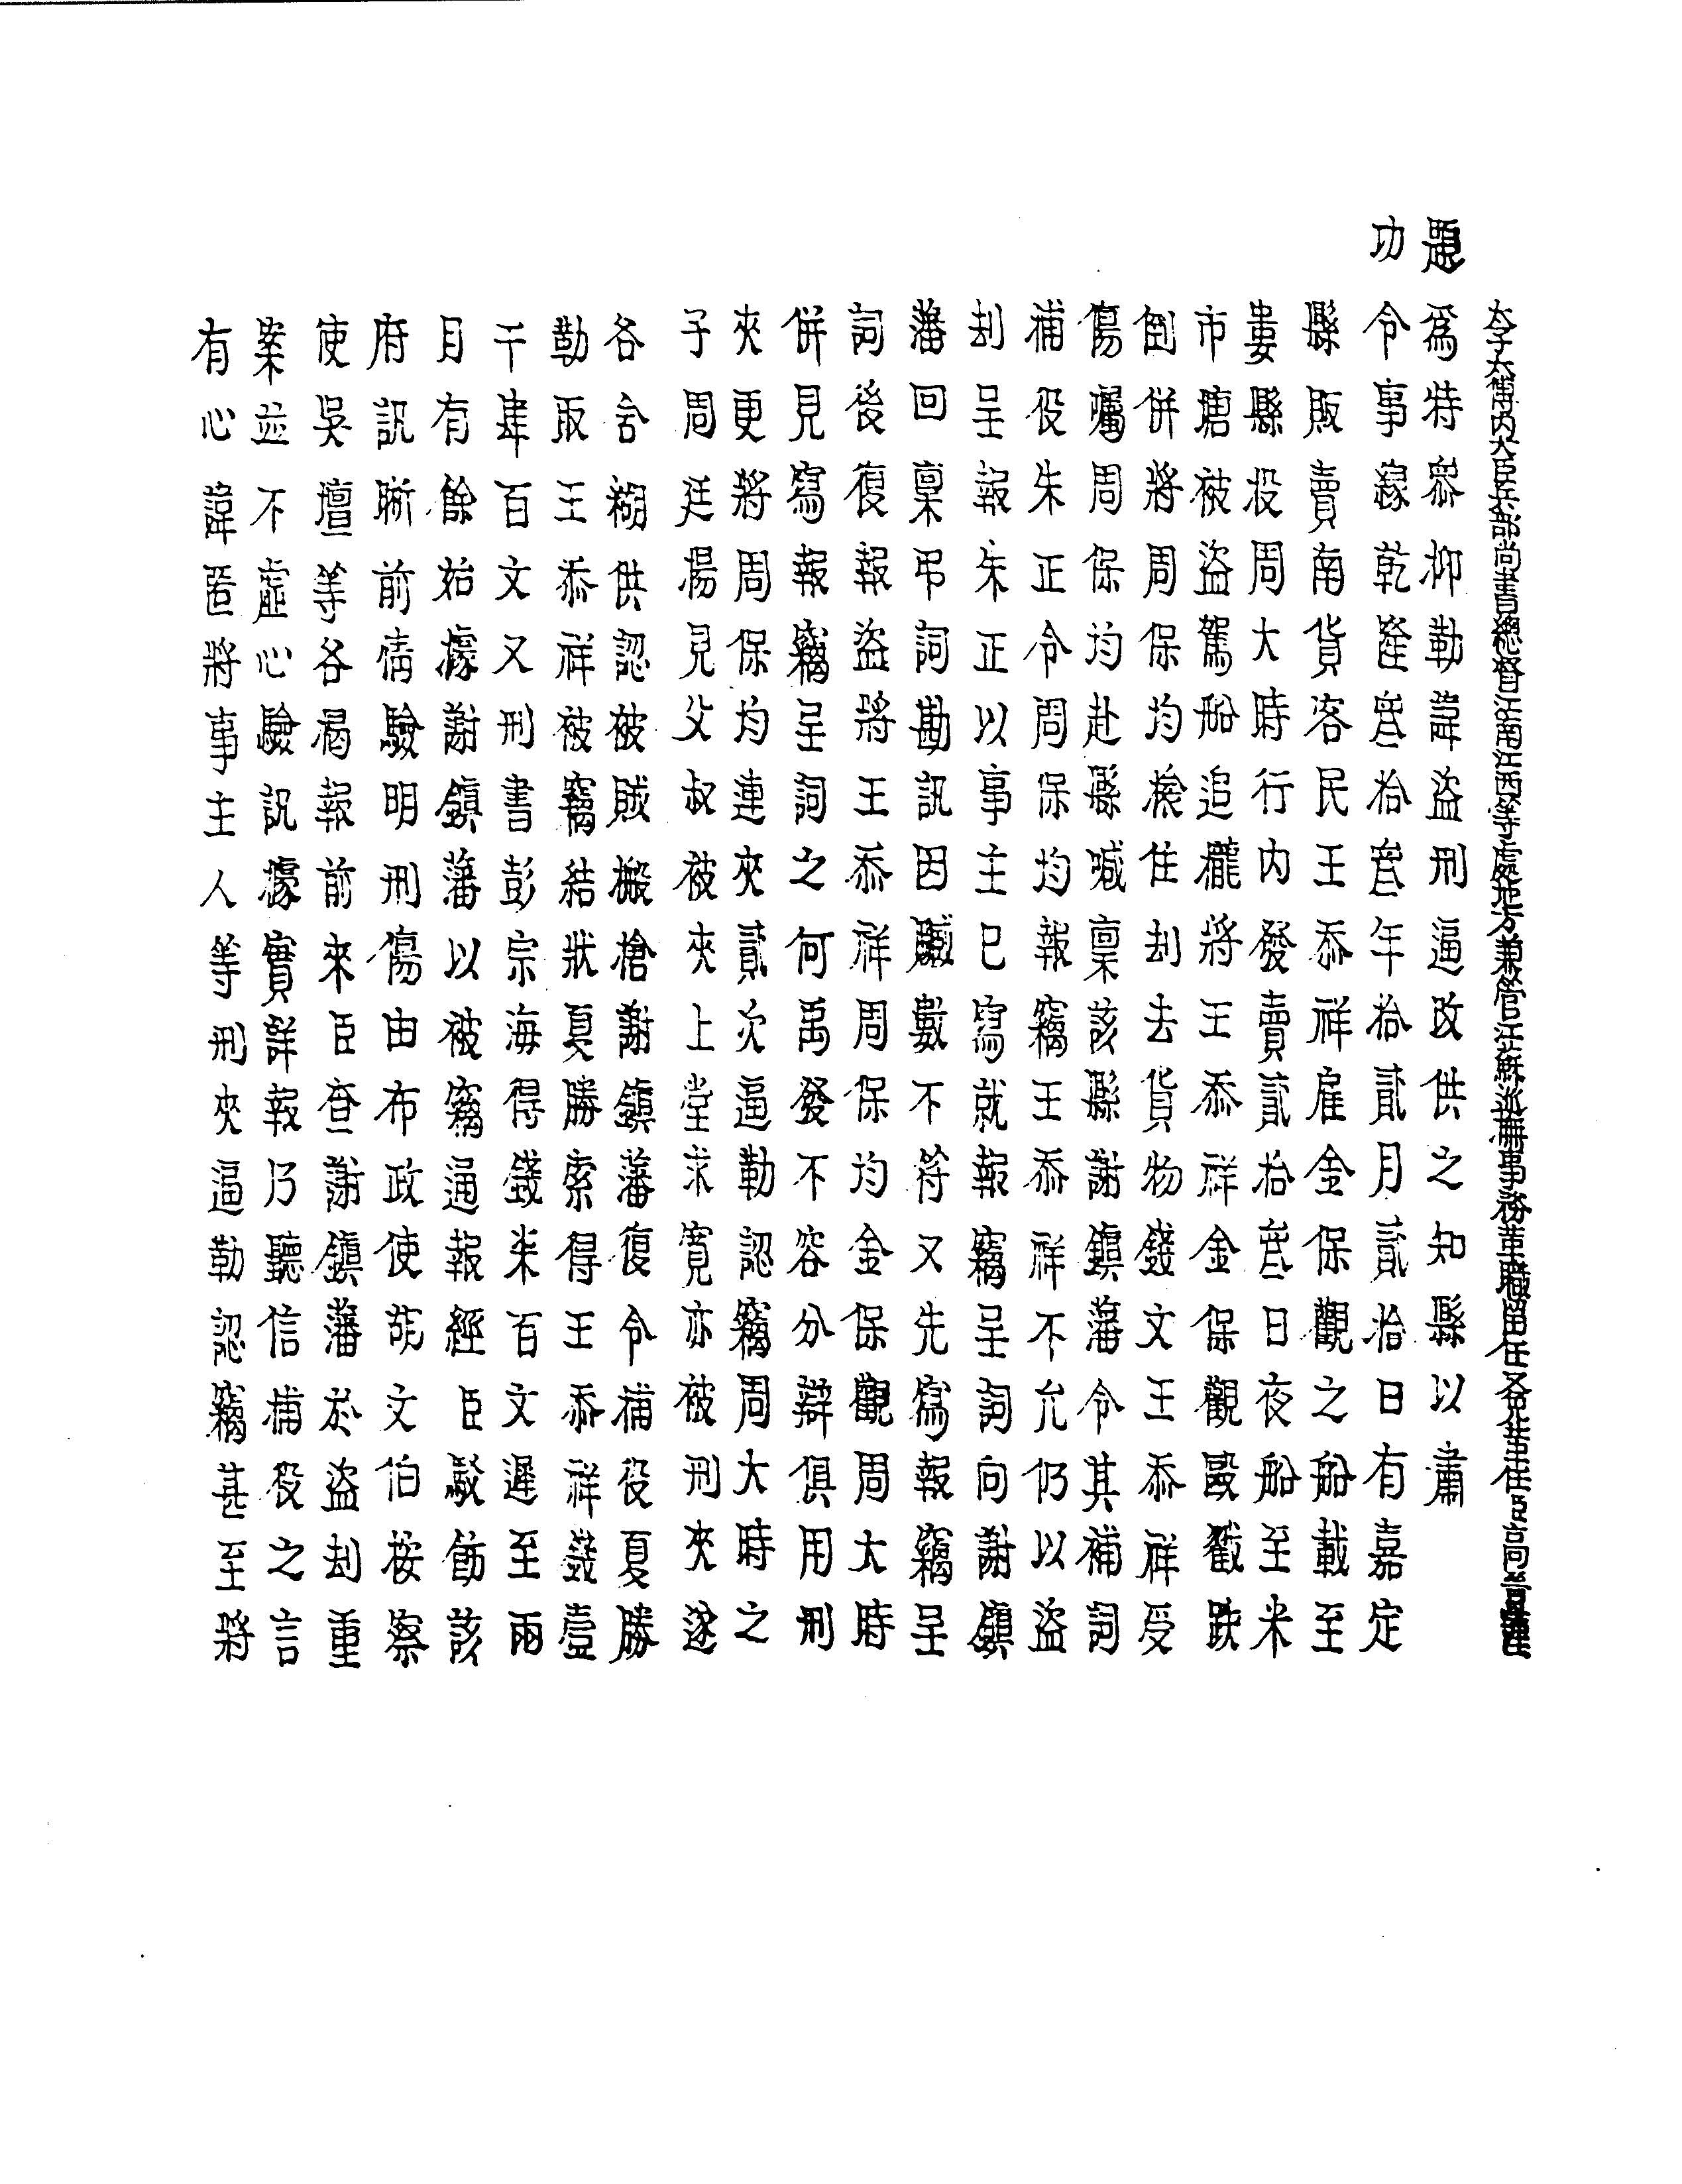 太子太傅內大臣兵部尚書總督江南江西等處地方兼管江蘇巡撫事務革職留任又免革任臣高晉謹
題為特參抑勒諱盜刑逼改供之知縣以肅
功令事緣乾隆叁拾叁年拾貳月貳拾日有嘉定
縣販賣南貨客民王忝祥雇金保觀之船載至
婁縣投周大時行內發賣貳拾叁日夜船至米
市塘被盜駕船追攏將王忝祥金保觀毆戳跌
倒併將周保均搇住刦去貨物錢文王忝祥受
傷囑周保均赴縣喊稟該縣謝鎮藩令其補詞
捕役朱正令周保均報竊王忝祥不允仍以盜
刦呈報朱正以事主已寫就報竊呈詞向謝鎮
藩回稟弔詞勘訊因贓數不符又先寫報竊呈
詞後復報盜將王忝祥周保均金保觀周大時
併見寫報竊呈詞之何禹發不容分辯俱用刑
夾更將周保均連夾貳次逼勒認竊周大時之
子周廷楊見父叔被夾上堂求寬亦被刑夾遂
各舍糊供認被賊搬搶謝鎮藩復令捕役夏勝
勒取王忝祥被竊結狀夏勝索得王忝祥錢壹
千肆百文又刑書彭宗海得錢柒百文遲至兩
月有餘始據謝鎮藩以被竊通報經臣駁飭該
府訊晰前情驗明刑傷由布政使胡文伯按察
使吳壇等各揭報前來臣查謝鎮藩於盜刦重
案並不虛心驗訊據實詳報乃聽信捕役之言
有心諱匿將事主人等刑夾逼勒認竊甚至將